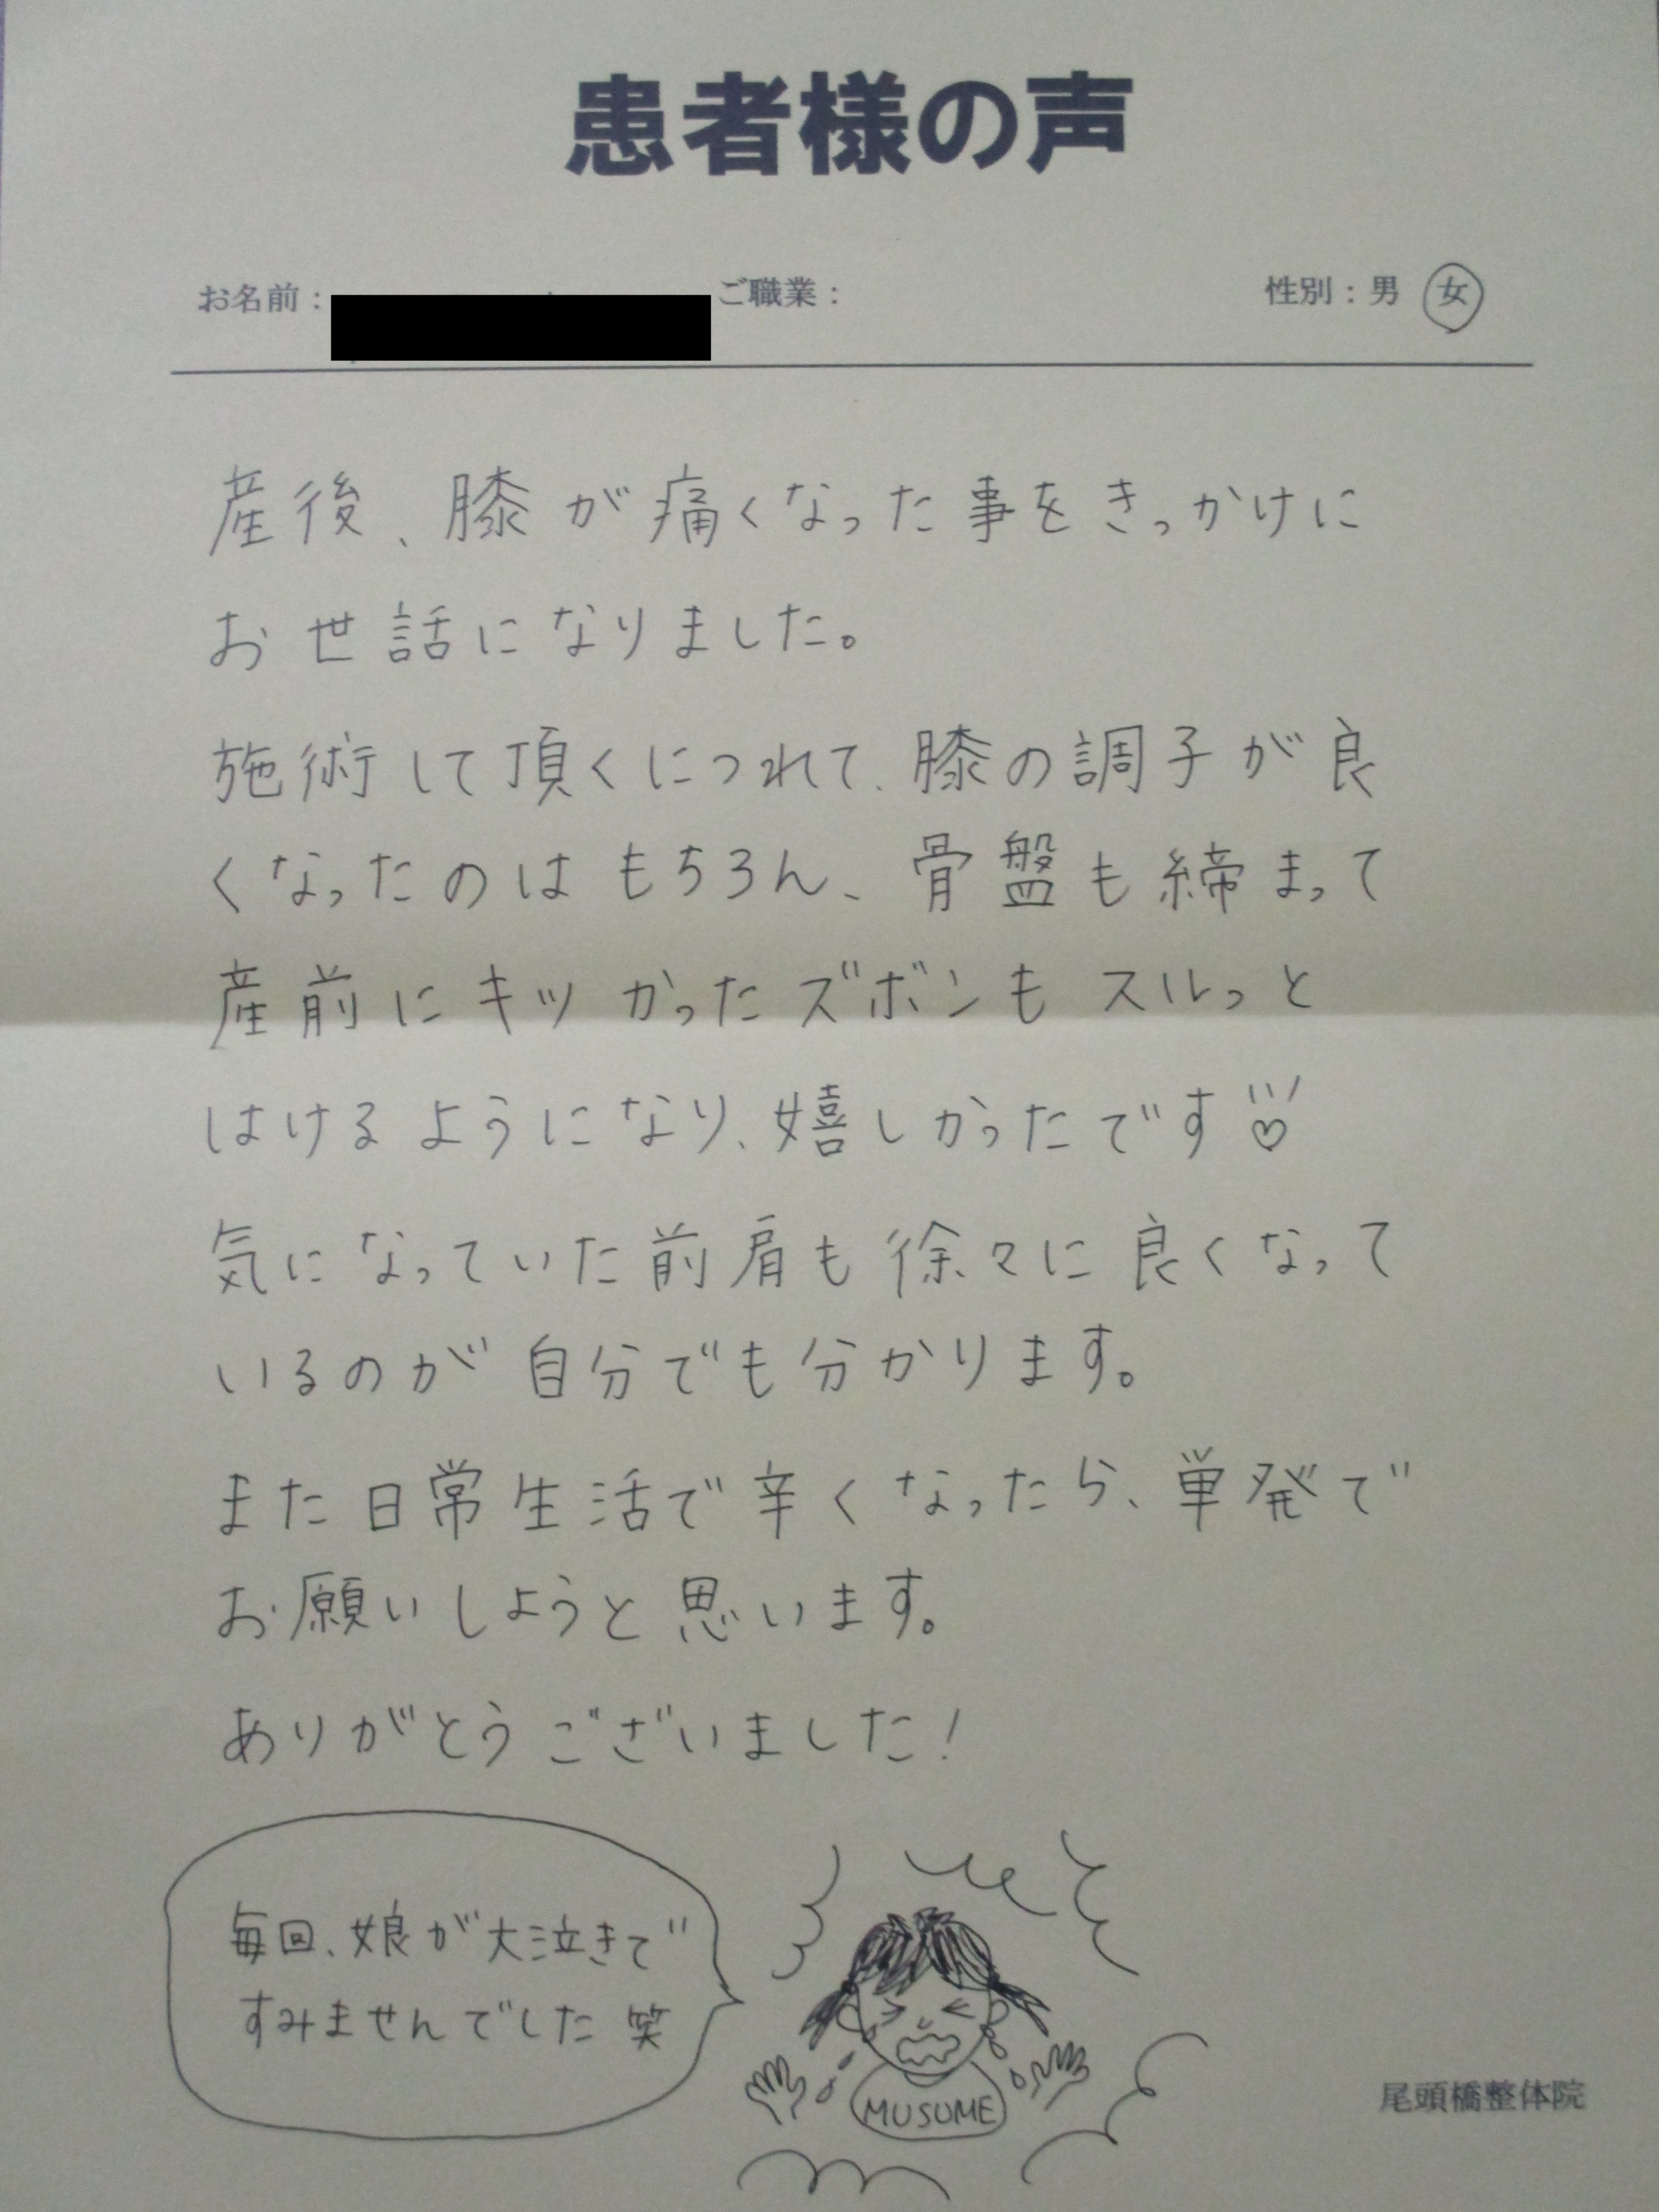 患者様の声
お名前： ご職業： 性別：男 女
産後、膝が痛くなった事をきっかけに
お世話になりました。
施術して頂くにつれて、膝の調子が良
くなったのはもちろん、骨盤も締まって
産前にキツかったズボンもスルっと
はけるようになり、嬉しかったです♡
気になっていた前肩も徐々に良くなって
いるのが自分でも分かります。
また日常生活で辛くなったら、単発で
お願いしようと思います。
ありがとうございました！
毎回、娘が大泣きで
すみませんでした 笑
MUSUME
尾頭橋整体院